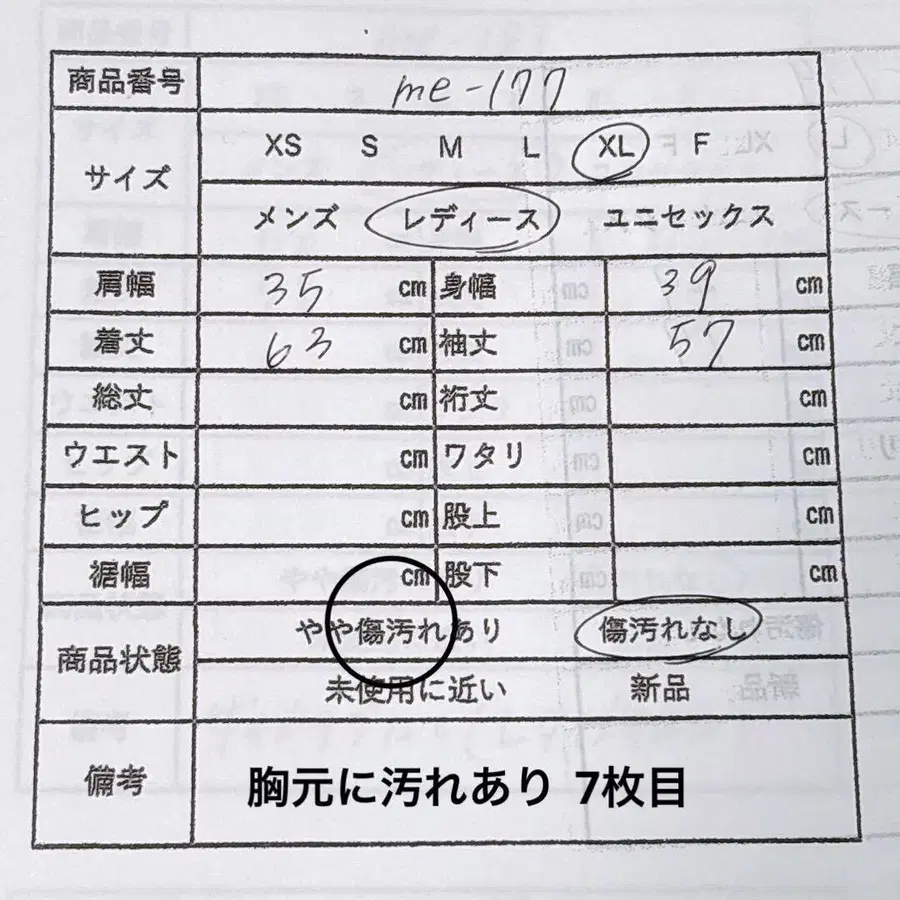 商品番号 me-177
サイズ XS S M L XL F
メンズ レディース ユニセックス
肩幅 35 cm 身幅 39 cm
着丈 63 cm 袖丈 57 cm
総丈 cm 裄丈 cm
ウエスト cm ワタリ cm
ヒップ cm 股上 cm
裾幅 cm 股下 cm
商品状態 やや傷汚れあり 傷汚れなし
未使用に近い 新品
備考 胸元に汚れあり 7枚目